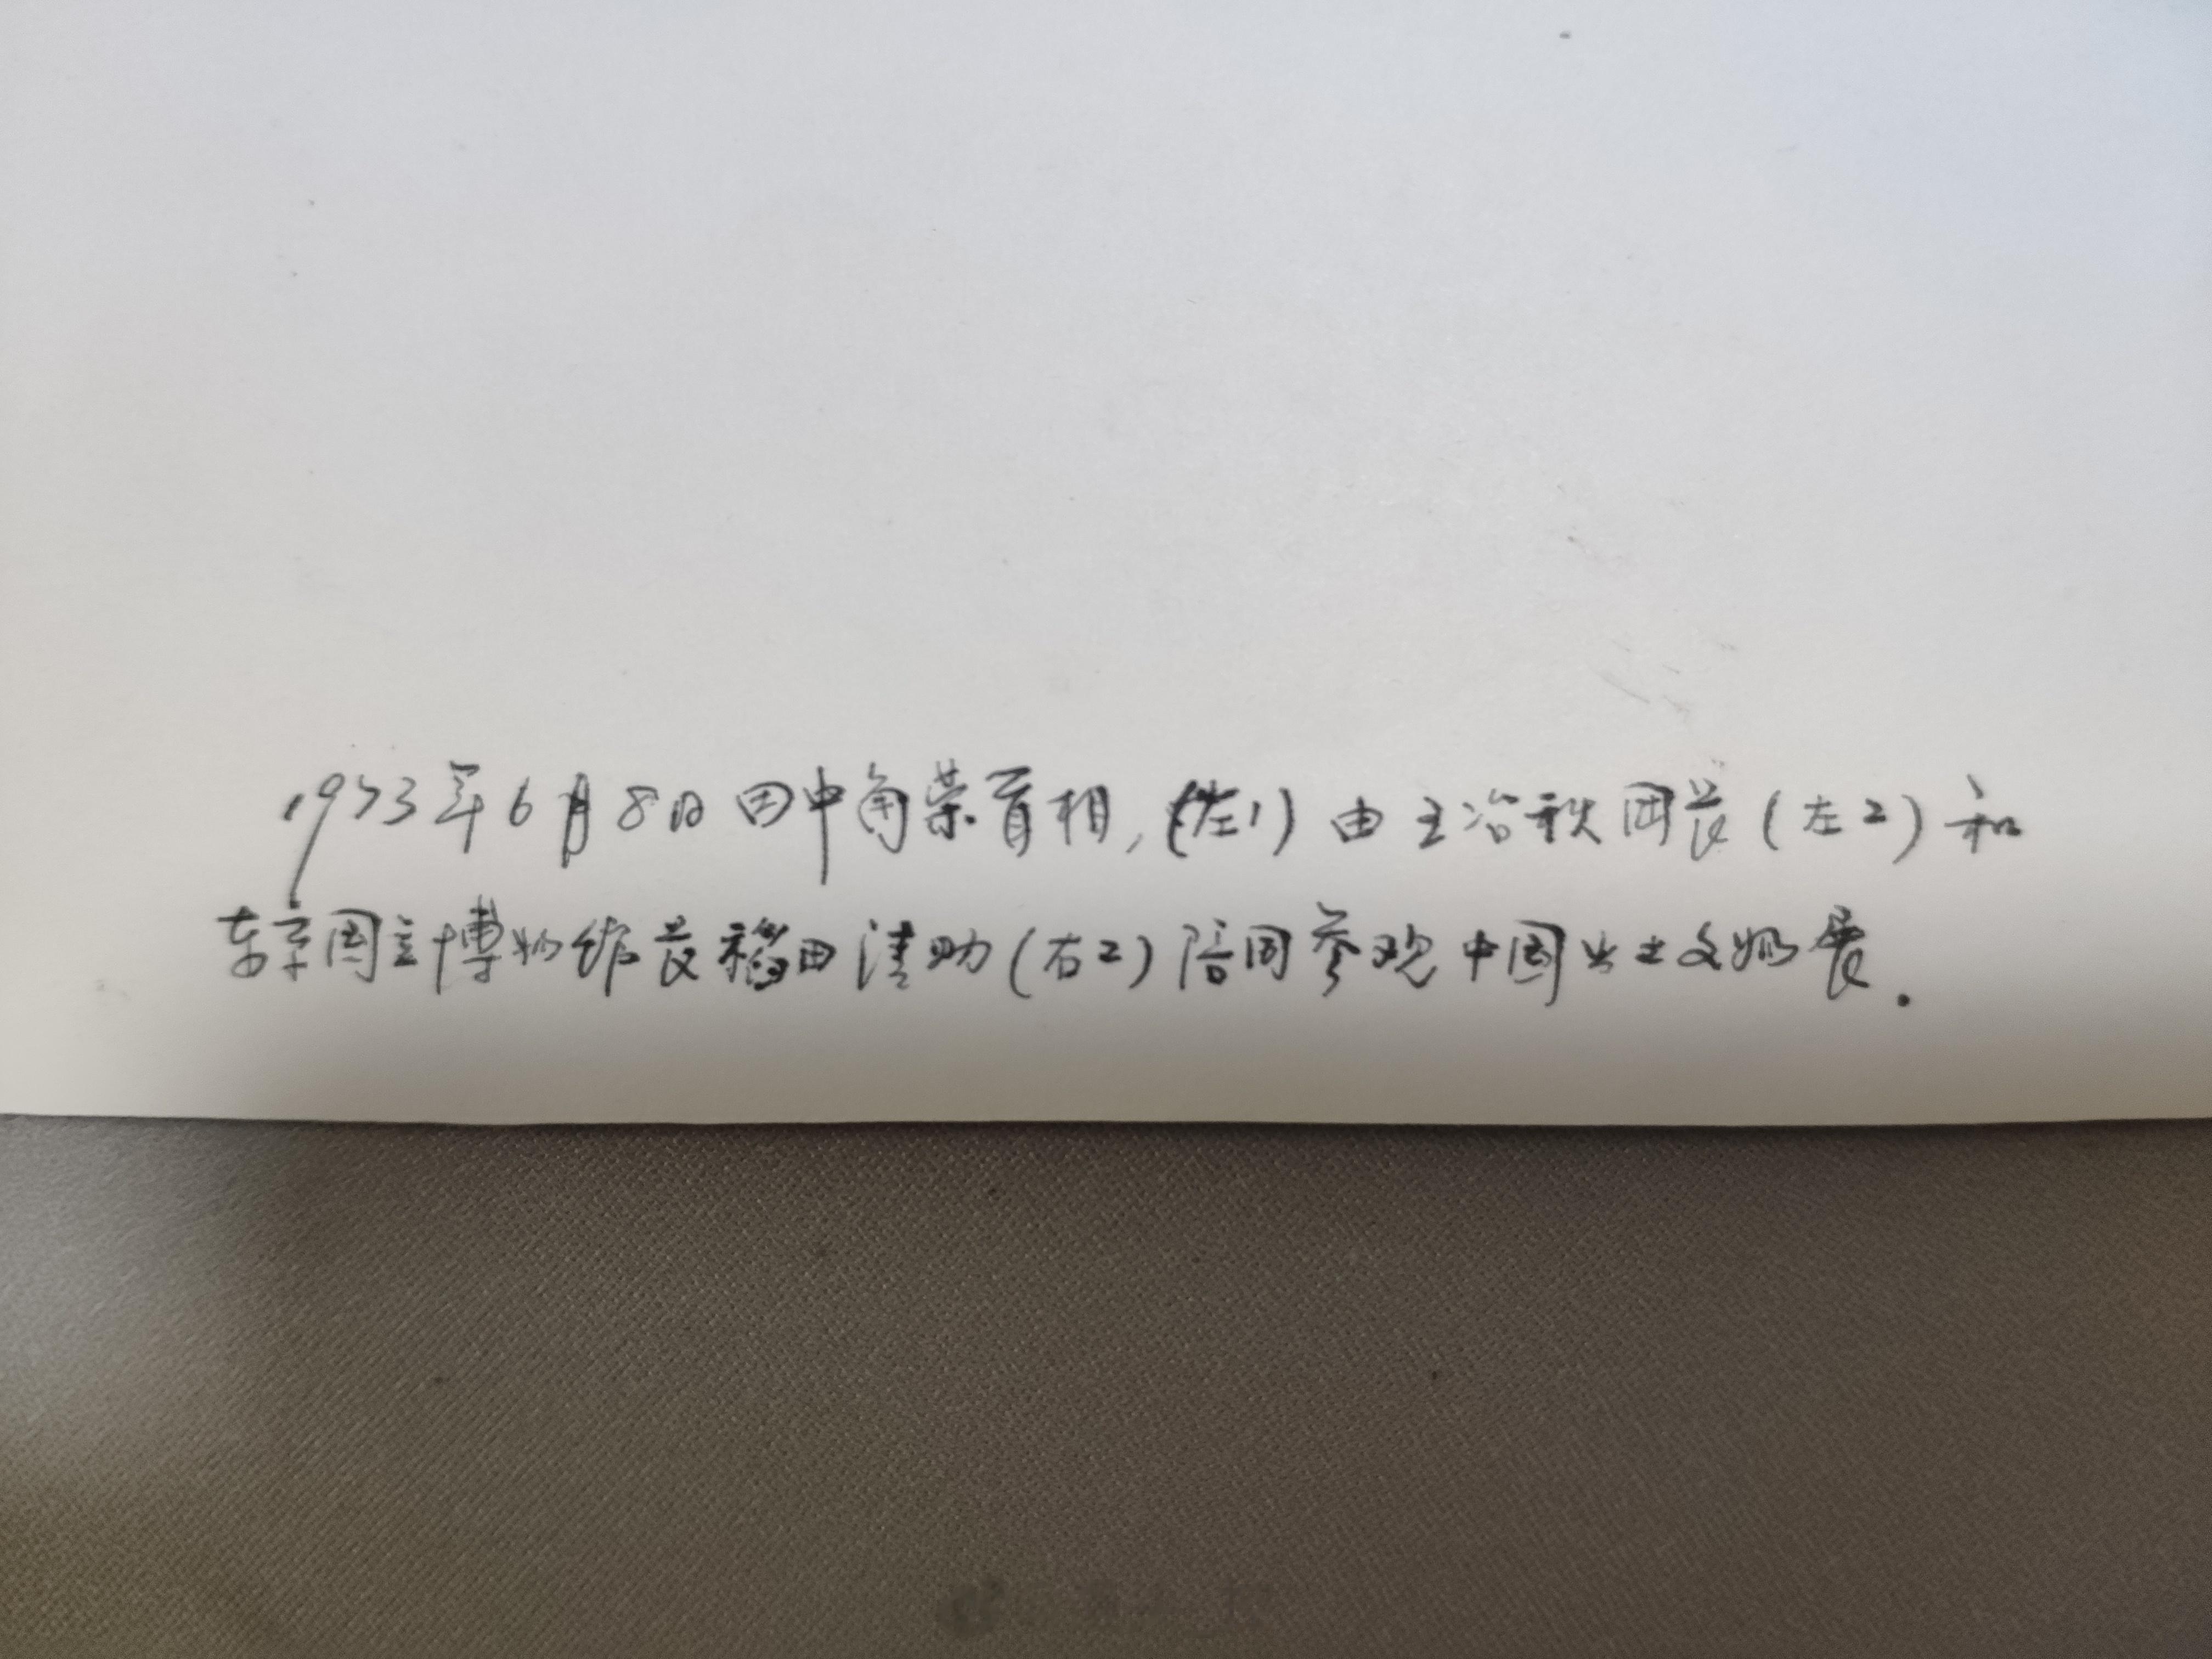 1973年6月8日田中角荣首相,(左1)由王冶秋团长(左2)和
东京国立博物馆长稻田清助(右2)陪同参观中国出土文物展.